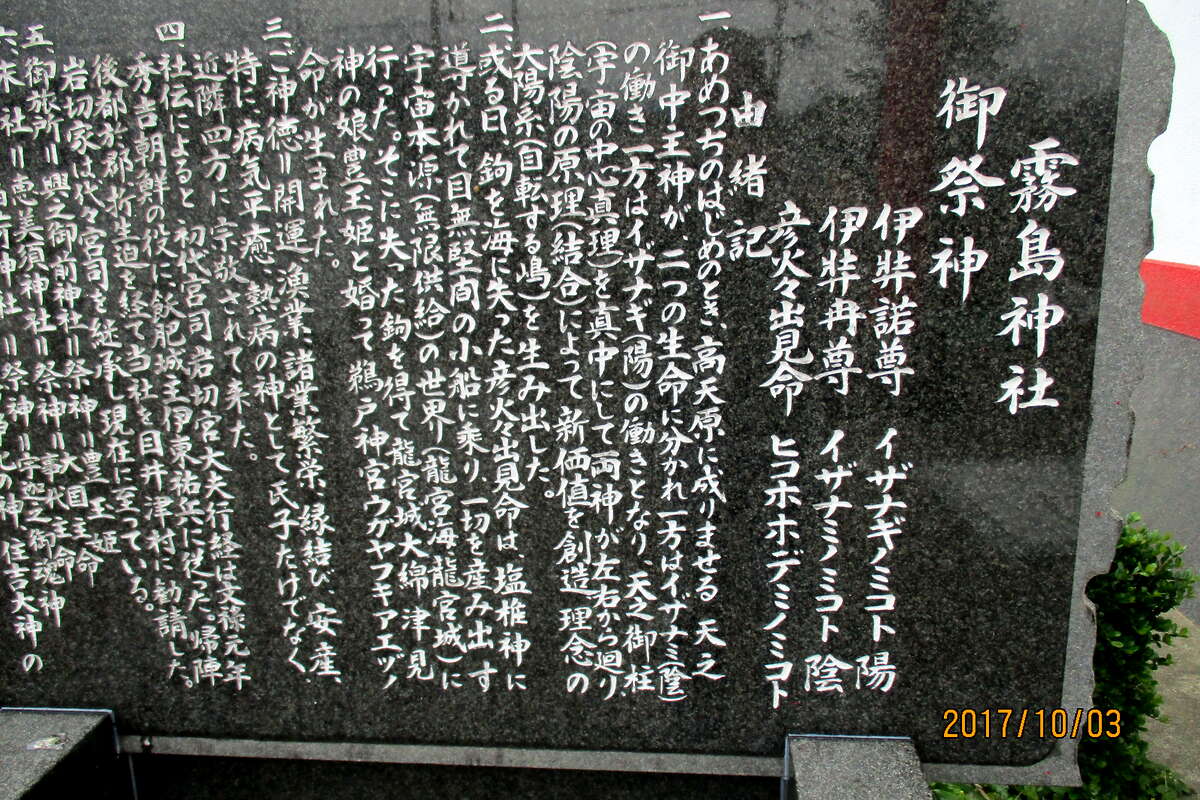 霧島神社
御祭神
伊弉諾尊 イザナギノミコト 陽
伊弉冉尊 イザナミノミコト 陰
彦火々出見命 ヒコホホデミノミコト
由緒記
一、あめつちのはじめのとき、高天原に成りませる 天之
御中主神が 二つの生命に分かれ一方はイザナミ(陰)
の働き一方はイザナギ(陽)の働きとなり、天之御柱
(宇宙の中心真理)を真中にして両神が左右から廻り
陰陽の原理(結合)によって 新価値を創造 理念の
大陽系(自転する嶋)を生み出した。
二、或る日 鉤を海に失った彦火々出見命は、塩椎神に
導かれて目無堅間の小船に乗り、一切を産み出す
宇宙本源(無限供給)の世界(龍宮海・龍宮城)に
行った。そこに失った鉤を得て龍宮城大綿津見
神の娘豊玉姫と婚って鵜戸神宮ウガヤフキアエヅノ
命が生まれた。
三、ご神徳=開運、漁業、諸業繁栄、縁結び、安産、
特に病気平癒、熱病の神として氏子たけでなく
近隣四方に宗敬されて来た。
四、社伝によると 初代宮司岩切宮大夫行経は文禄元年
秀吉朝鮮の役に、飫肥城主伊東祐兵に従った。帰陣
後都於郡、折生迫を経て当社を目井津村に勧請した。
岩切家は代々宮司を継承し現在に至っている。
五、御旅所=興之御前神社=祭神=豊玉姫
六、末社=恵美須神社=祭神=事代主命 大国主命
神社=祭神=宇迦之御魂神
住吉大神の
2017/10/03